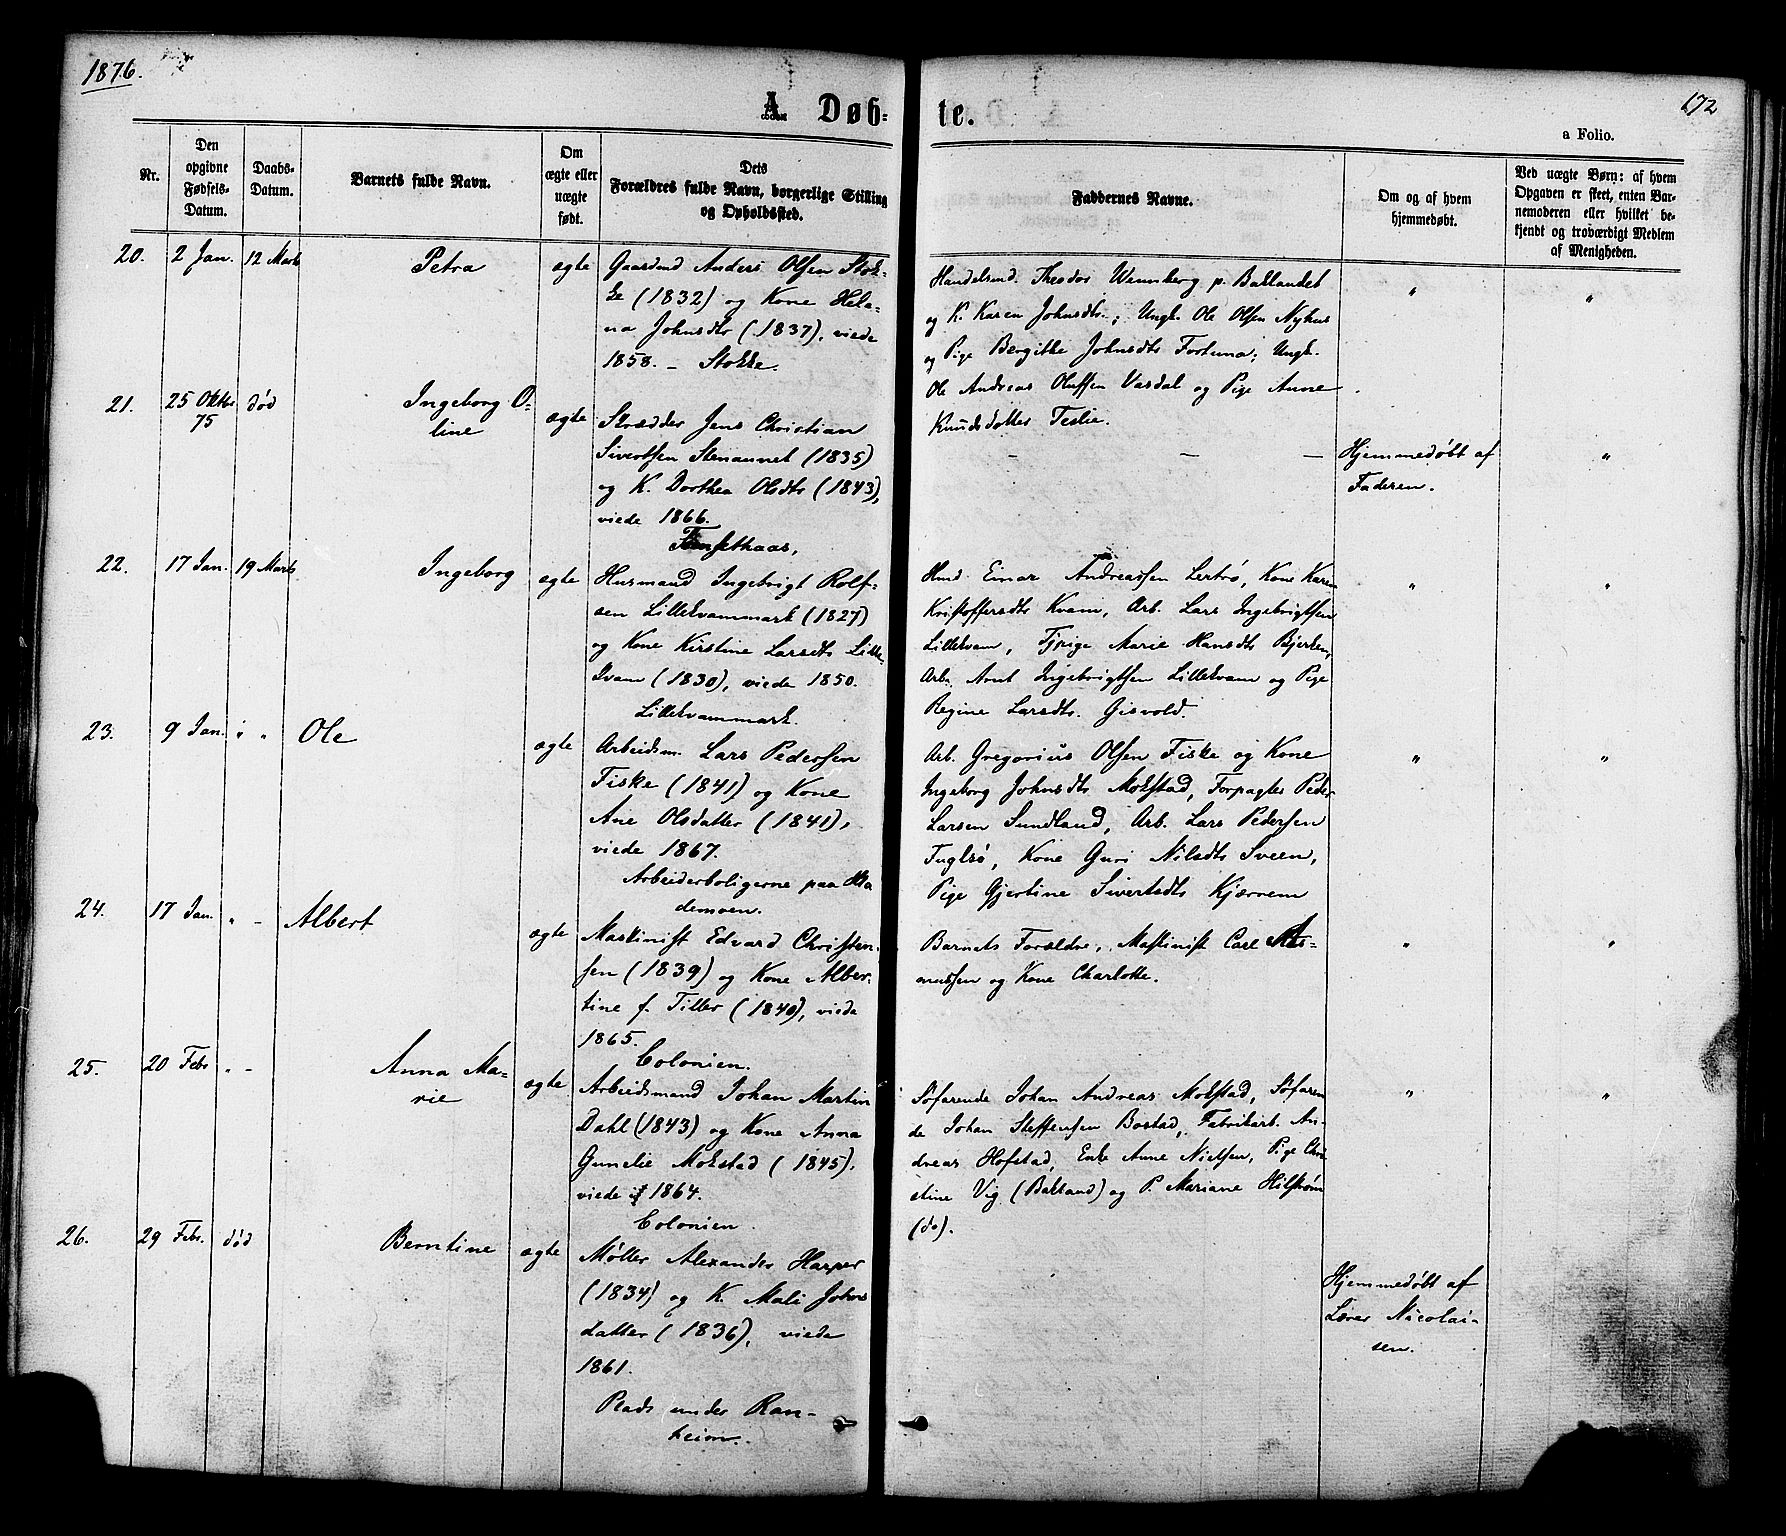 1876.
172
A. Døb-
te.
a Folio.
Nr.
Den
opgivne
Fødsels-
Datum.
Daabs-
Datum.
Barnets fulde Navn.
Om
ægte eller
uægte
født.
Dets
Forældres fulde Navn, borgerlige Stilling
og Opholdssted.
Faddernes Navne.
Om og af hvem
hjemmedøbt.
Ved uægte Børn: af hvem
Opgaven er skeet, enten Bar-
nemoderen eller hvilket be-
kjendt og troværdigt Medlem
af Menigheden.
20. 2 Jan. 12 Marts Petra ægte
Gaardmd Anders Olsen Stok-
ke (1832) og Kone Hele-
na Johnsdtr (1837), viede
1858. – Stokke.
Handelsmd. Theodor Wennberg p. Baklandet
og K. Karen Johnsdtr.; Ungk. Ole Olsen Nyhus
og Pige Bergitte Johnsdtr Fortuna; Ungk.
Ole Andreas Olufsen Vasdal og Pige Anne
Knudsdatter Teslie.
" "
21. 25 Oktbr
75
død Ingeborg O-
line
ægte
Skrædder Jens Christian
Sivertsen Stenaunet (1835)
og K. Dorthea Olsdtr (1843),
viede 1866.
– – –
Hjemmedøbt af
Faderen.
"
22. 17 Jan. 19 Marts Ingeborg ægte
Husmand Ingebrigt Rolf-
sen Lillekvammark (1827)
og Kone Kirstine Larsdtr Lille-
kvam (1830), viede 1850.
Lillekvammark.
Hmd. Einar Andreassen Lertrø, Kone Karen
Kristoffersdtr Kvam, Arb. Lars Ingebrigtsen
Lillekvam, Tjpige Marie Hansdtr Bjerken,
Arb. Arnt Ingebrigtsen Lillekvam og Pige
Regine Larsdtr. Gisvold.
" "
23. 9 Jan. " " Ole ægte
Arbeidsm. Lars Pedersen
Fiske (1841) og Kone
Ane Olsdatter (1841),
viede 1867.
Arbeiderboligerne paa Rta
demoen.
Arb. Gregorius Olsen Fiske og Kone
Ingeborg Johnsdtr Mokstad, Forpagter Peder
Larsen Sundland, Arb. Lars Pedersen
Fuglsø, Kone Guri Nilsdtr Sveen,
Pige Gjertine Sivertsdtr Kjærnem
" "
24. 17 Jan. " – Albert ægte
Maskinist Edvard Christen-
sen (1839) og Kone Alber-
tine f. Tiller (1840), viede
1865.
Colonien.
Barnets Forældre, Maskinist Carl As-
mussen og Kone Charlotte.
" "
25. 20 Febr " – Anna Ma-
rie
ægte
Arbeidsmand Johan Martin
Dahl (1843) og Kone Anna
Gunelie Mokstad (1845),
viede 1864.
Colonien.
Søfarende Johan Andreas Mokstad, Søfaren
de Johan Steffensen Bostad, Fabrikarb. An-
dreas Hofstad, Enke Anne Nielsen, Pige Chri
stine Vig (Bakland) og P. Mariane Hilstrøm
(do).
" "
26. 29 Febr. død Berntine ægte
Møller Alexander Harper
(1834) og K. Mali Johns
datter (1836), viede
1861.
Plads under Ran-
heim.
Hjemmedøbt af
Lærer Nicolai-
sen.